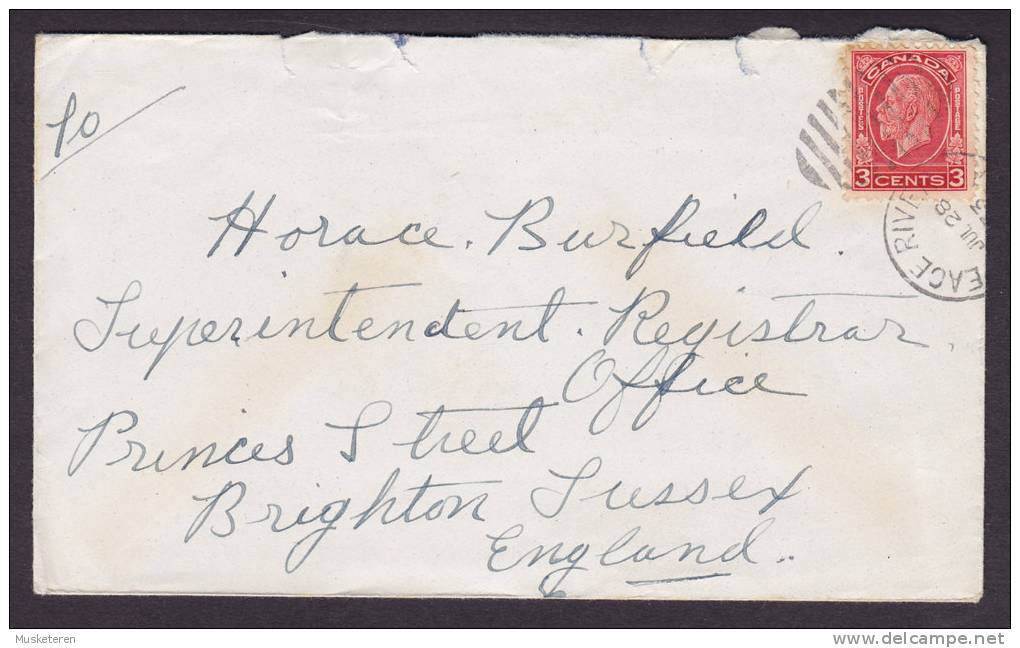 CANADA
POSTES POSTAGE
3 CENTS 3
EACE RIVE
JUL 28
Horace. Burfield.
Superintendent. Registrar.
Office
Princes Street
Brighton Sussex
England..
Musketeren
delcampe.net